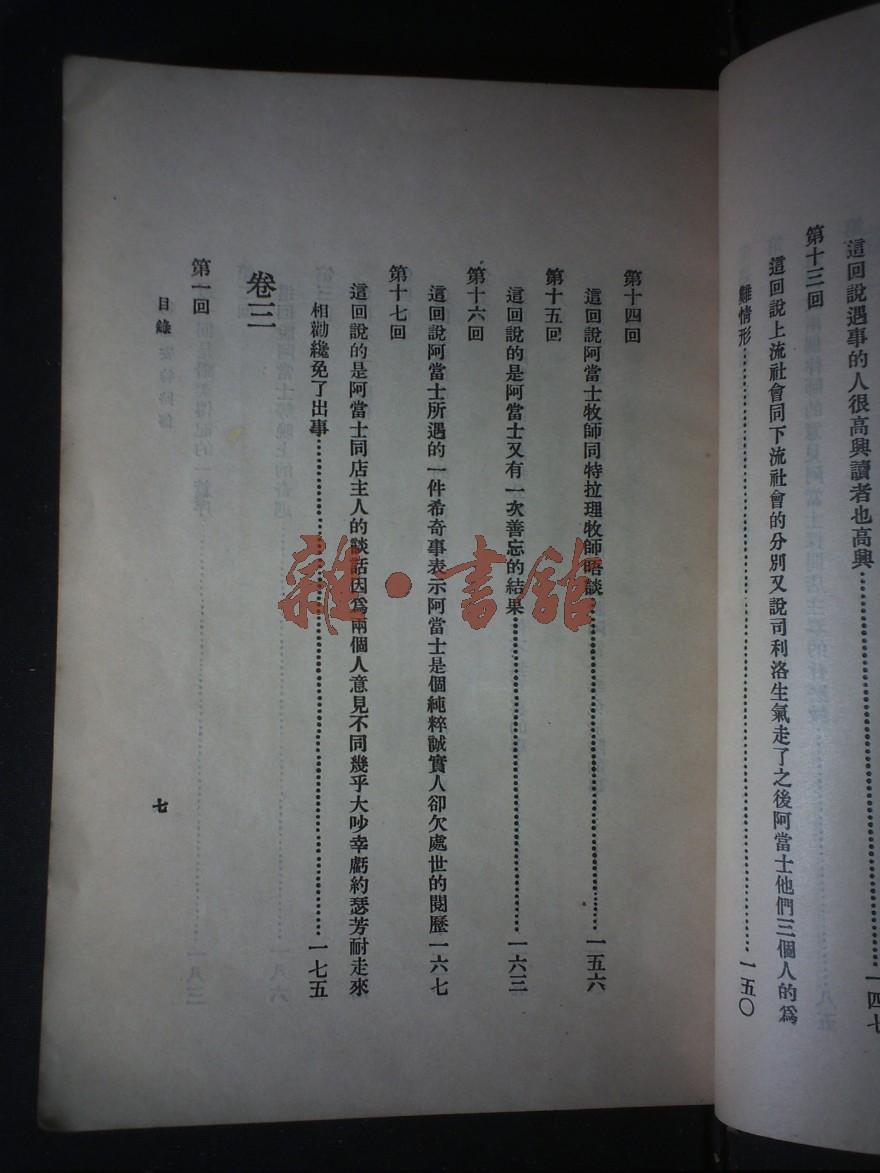 這回說遇事的人很高興讀者也高興………一四七
第十三回
這回說上流社會同下流社會的分別又說司利洛生氣走了之後阿當士他們三個人的為
難情形………一五〇
第十四回
這回說阿當士牧師同特拉理牧師略談………一五六
第十五回
這回說的是阿當士又有一次善忘的結果………一六三
第十六回
這回說阿當士所遇的一件希奇事表示阿當士是個純粹誠實人卻欠處世的閱歷一六七
第十七回
這回說的是阿當士同店主人的談話因為兩個人意見不同幾乎大吵幸虧約瑟芳耐走來
相勸纔免了出事………一七五
卷三
第一回
目錄
七
雜·書館